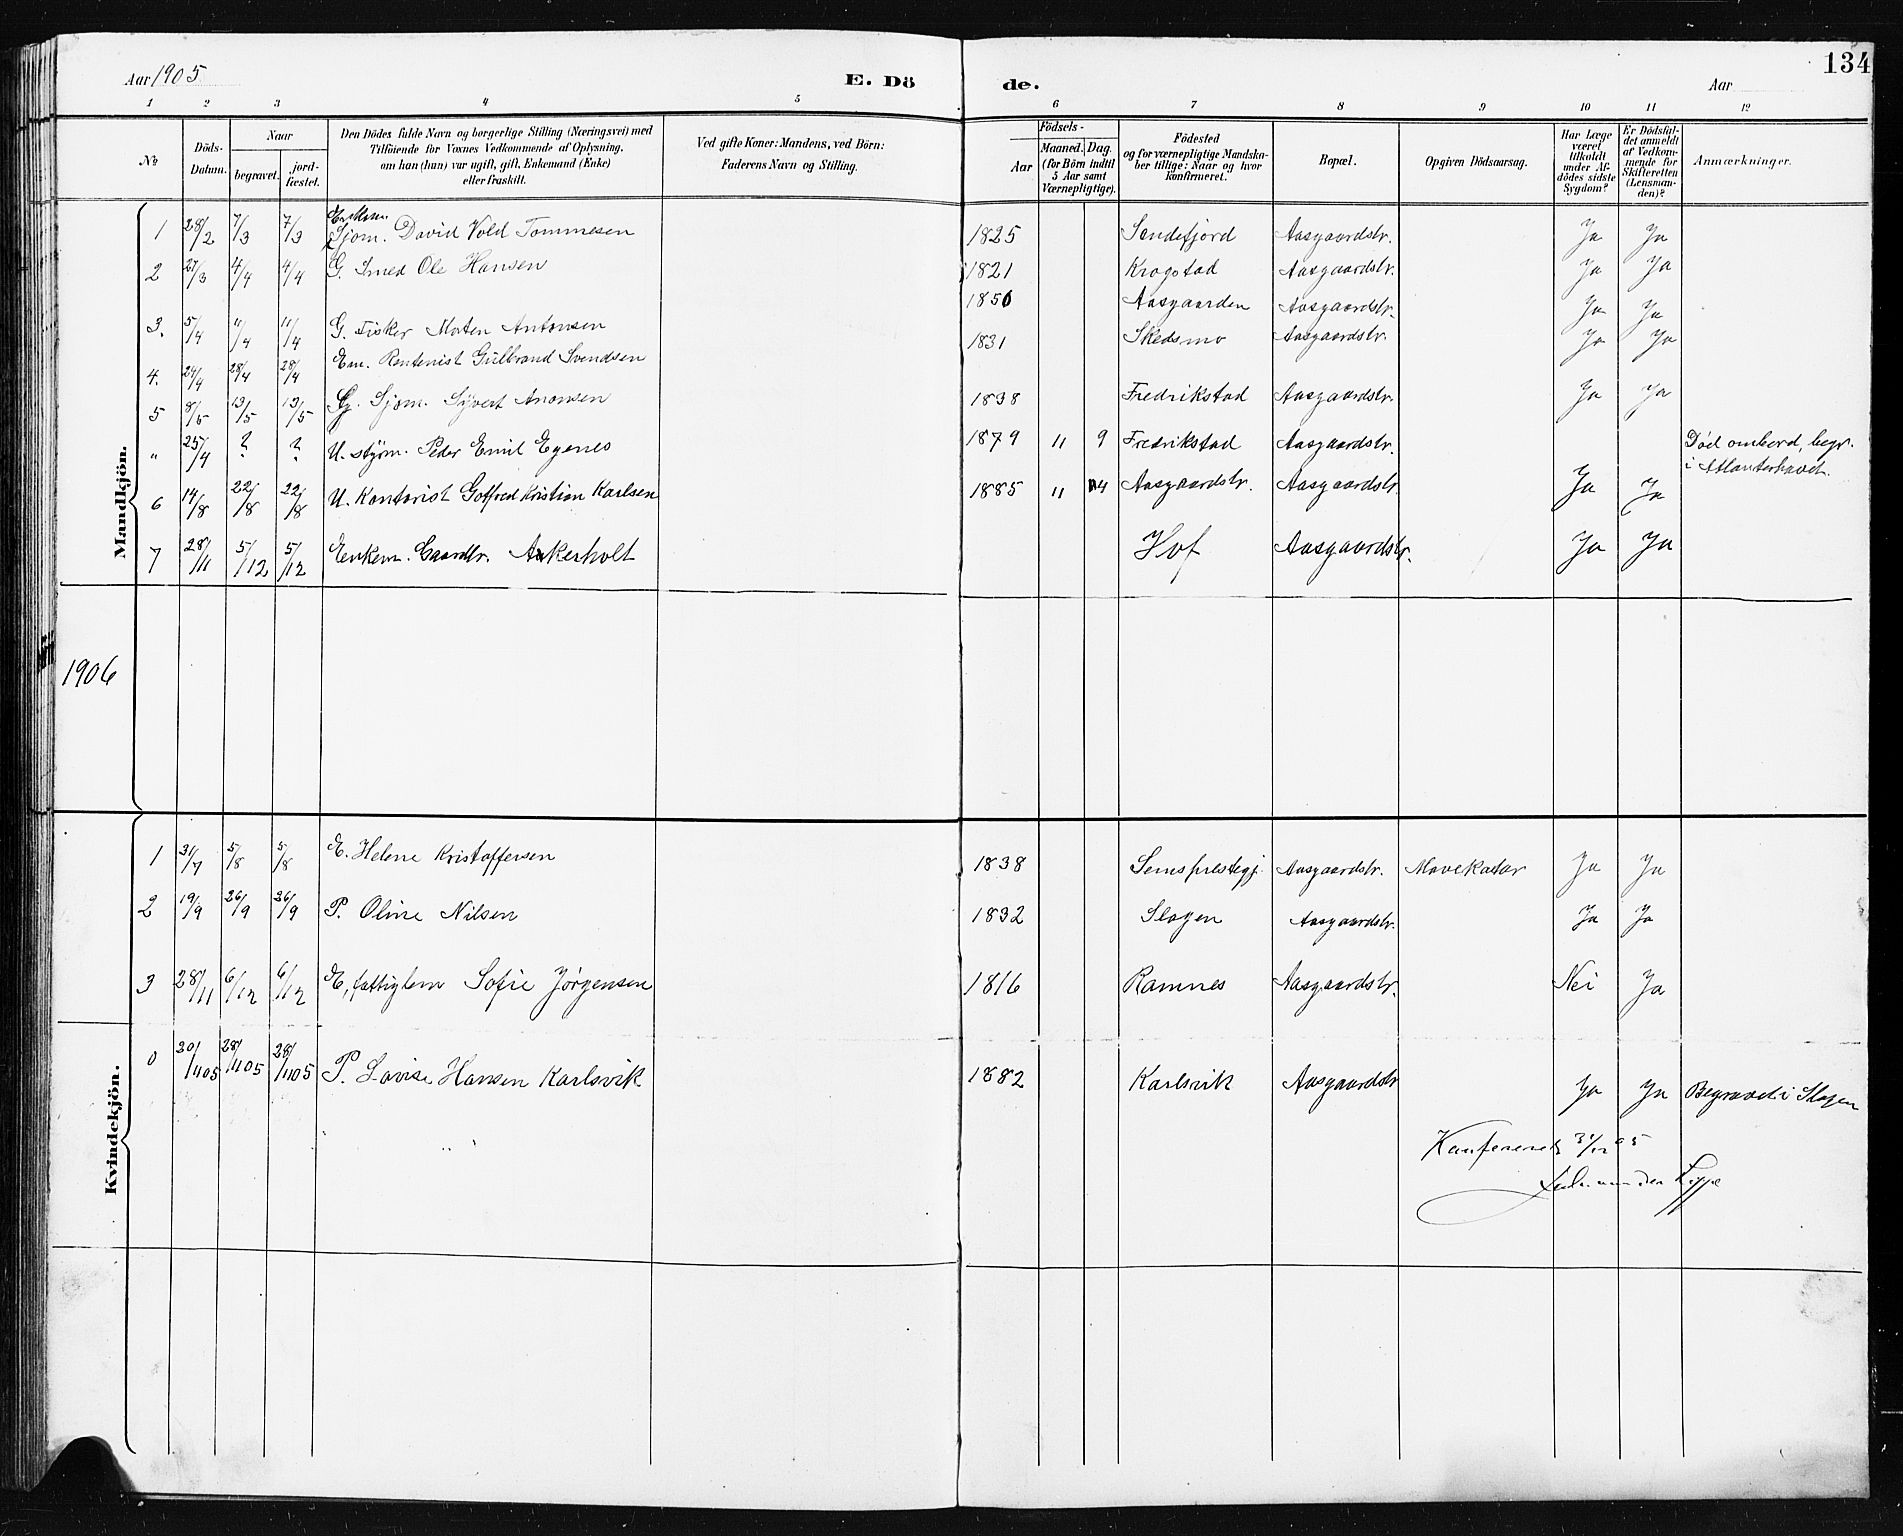 134
Aar 1905 E. Dö de. Aar
1 2 3 4 5 6 7 8 9 10 11 12
No
Döds-Datum.
Naar
begravet.
jord-fæstet.
Den Dödes fulde Navn og borgerlige Stilling (Næringsvei) med
Tilföiende for Voxnes Vedkommende af Oplysning,
om han (hun) var ugift, gift, Enkemand (Enke)
eller fraskilt.
Ved gifte Koner: Mandens, ved Börn:
Faderens Navn og Stilling.
Födsels-
Aar
Maaned. Dag.
(for Börn indtil
5 Aar samt
Værnepligtige).
Födested
og for værnepligtige Mandska-
ber tillige: Naar og hvor
konfirmeret.
Bopæl.
Opgiven Dödsaarsag.
Har Læge
været
tilkaldt
under Af-
dödes sidste
Sygdom?
Er Dödsfal-
det anmeldt
af Vedkom-
mende for
Skifteretten
(Lensman-
den)?
Anmærkninger.
Mandkjön.
1 28/2 7/3 7/3 Enkem. Sjöm. David Vold Tommesen 1825 Sandefjord Aasgaardstr. Ja Ja
2 27/3 4/4 4/4 G. Smed Ole Hansen 1821 Krogstad Aasgaardstr. Ja Ja
3. 5/4 11/4 11/4 G. Fisker Morten Antonsen 1850 Aasgaarden Aasgaardstr. Ja Ja
4. 24/4 28/4 28/4 Em. Rentenist Gulbrand Svendsen 1831 Skedsmo Aasgaardstr. Ja Ja
5 8/5 13/5 13/5 G. Sjöm. Syvert Aronsen 1838 Fredrikstad Aasgaardstr. Ja Ja
" 25/4 ? ? U. styrm. Peder Emil Egenes 1879 11 9 Fredrikstad Aasgaardstr. Död ombord, begr.
i Atlanterhavet.
6 14/8 22/8 22/8 U. Kontorist Gotfred Kristian Karlsen 1885 11 14 Aasgaardstr. Aasgaardstr. Ja Ja
7 28/11 5/12 5/12 Enkem. Gaardbr. Askerholt Hof Aasgaardstr. Ja Ja
1906
Kvindekjön.
1 31/7 5/8 5/8 E. Helene Kristoffersen 1838 Sems prestegj. Aasgaardstr. Mavekatar Ja Ja
2 19/9 26/9 26/9 P. Oline Nilsen 1832 Slagen Aasgaardstr. Ja Ja
3 28/11 6/12 6/12 E, fattiglem Sofie Jørgensen 1816 Ramnes Aasgaardstr. Nei Ja
0 20/1105 28/1105 28/1105 P. Lovise Hansen Karlsvik 1882 Karlsvik Aasgaardstr Ja Ja Begravet i Slagen
" "
Konfereret 31/12 05